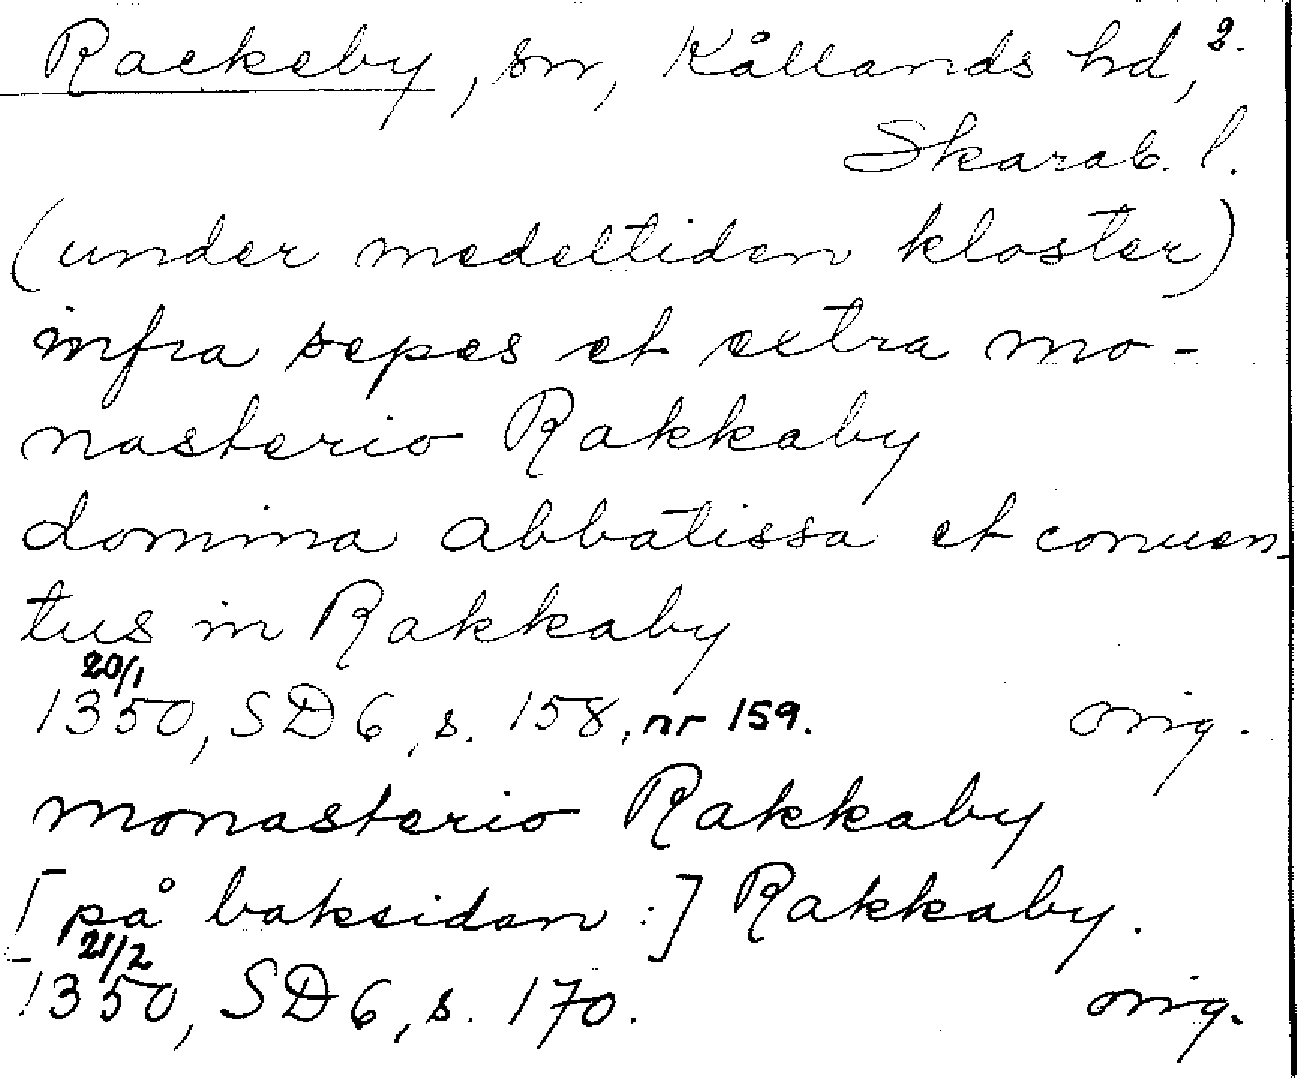 Rackeby, sn, Kållands hd, 2.
Skarab. l.
(under medeltiden kloster)
infra sepes et extra mo-
nasterio Rakkaby
domina abbatissa et conuen-
tus in Rakkaby
20/1
1350, SD 6, s. 158, nr 159. orig.
monasterio Rakkaby
[på baksidan:] Rakkaby.
21/2
1350, SD 6, s. 170. orig.